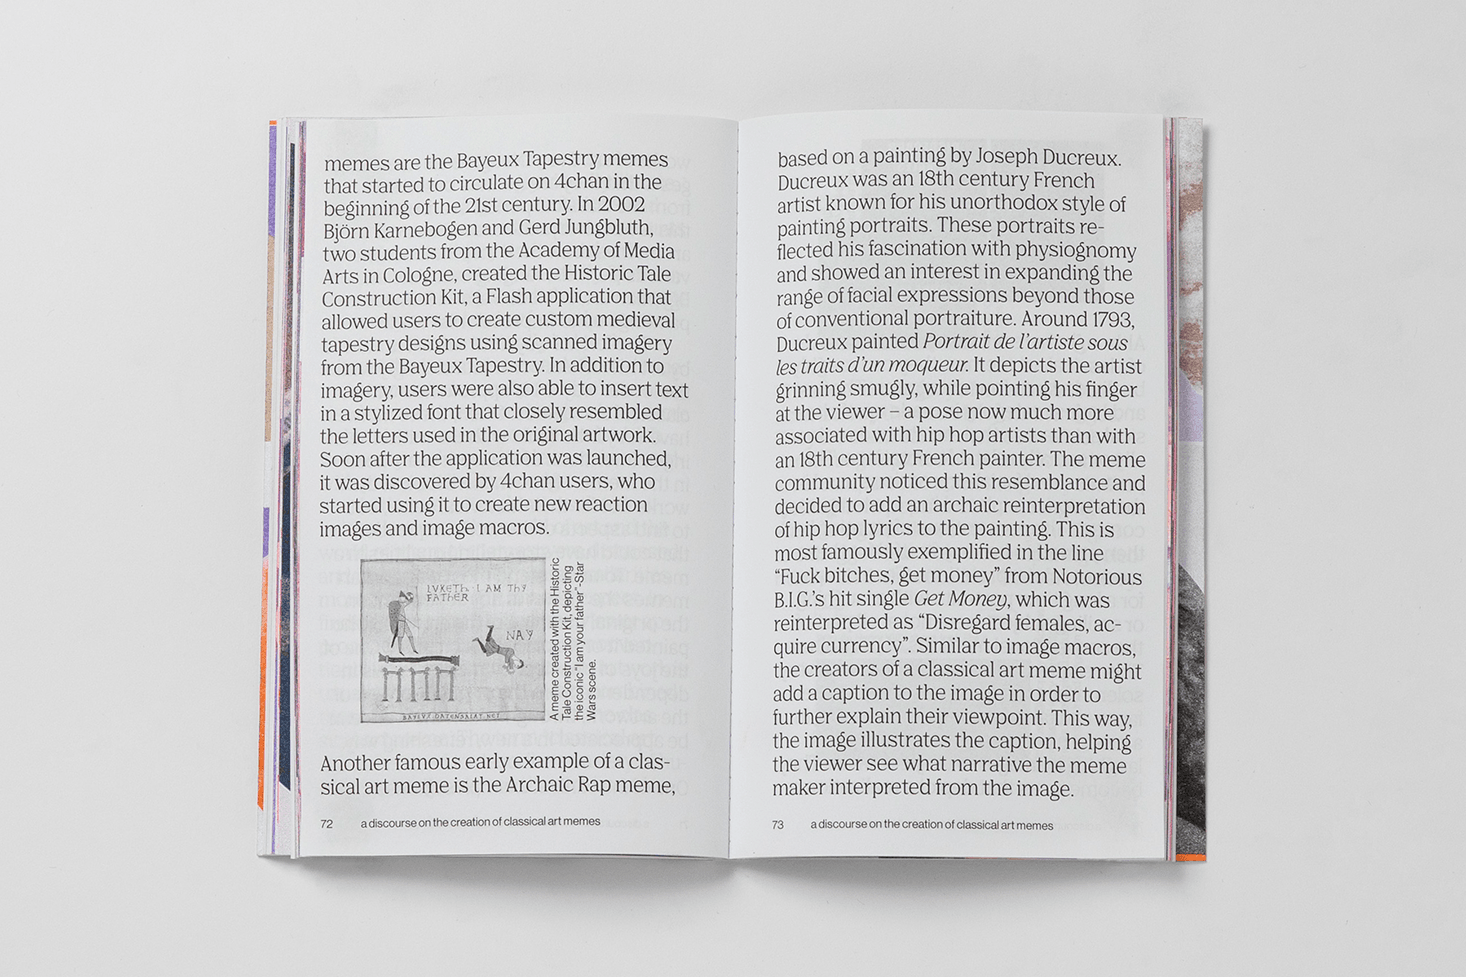 memes are the Bayeux Tapestry memes
that started to circulate on 4chan in the
beginning of the 21st century. In 2002
Björn Karnebogen and Gerd Jungbluth,
two students from the Academy of Media
Arts in Cologne, created the Historic Tale
Construction Kit, a Flash application that
allowed users to create custom medieval
tapestry designs using scanned imagery
from the Bayeux Tapestry. In addition to
imagery, users were also able to insert text
in a stylized font that closely resembled
the letters used in the original artwork.
Soon after the application was launched,
it was discovered by 4chan users, who
started using it to create new reaction
images and image macros.
IVKETH· I AM THY
FATHER
NAY
A meme created with the Historic
Tale Construction Kit, depicting
the iconic "I am your father"-Star
Wars scene.
Another famous early example of a clas-
sical art meme is the Archaic Rap meme,
72 a discourse on the creation of classical art memes
based on a painting by Joseph Ducreux.
Ducreux was an 18th century French
artist known for his unorthodox style of
painting portraits. These portraits re-
flected his fascination with physiognomy
and showed an interest in expanding the
range of facial expressions beyond those
of conventional portraiture. Around 1793,
Ducreux painted Portrait de l'artiste sous
les traits d'un moqueur. It depicts the artist
grinning smugly, while pointing his finger
at the viewer – a pose now much more
associated with hip hop artists than with
an 18th century French painter. The meme
community noticed this resemblance and
decided to add an archaic reinterpretation
of hip hop lyrics to the painting. This is
most famously exemplified in the line
“Fuck bitches, get money” from Notorious
B.I.G.'s hit single Get Money, which was
reinterpreted as “Disregard females, ac-
quire currency”. Similar to image macros,
the creators of a classical art meme might
add a caption to the image in order to
further explain their viewpoint. This way,
the image illustrates the caption, helping
the viewer see what narrative the meme
maker interpreted from the image.
73 a discourse on the creation of classical art memes